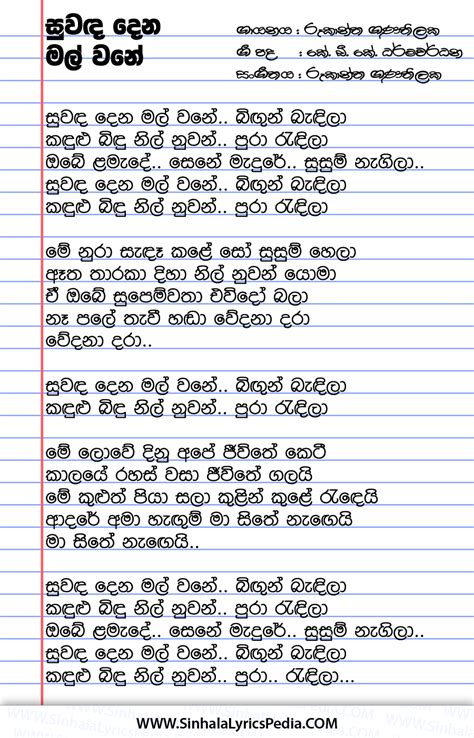 සුවඳ දෙන
මල් වනේ
ගායනය : රුකාන්ත ගුණතිලක
ගී පද : කේ. ඩී. කේ. ධර්මවර්ධන
සංගීතය : රුකාන්ත ගුණතිලක
සුවඳ දෙන මල් වනේ.. බිඟුන් බැඳිලා
කඳුළු බිඳු නිල් නුවන්.. පුරා රැඳිලා
ඔබේ ළමැදේ.. සෙනේ මැදුරේ.. සුසුම් නැගිලා..
සුවඳ දෙන මල් වනේ.. බිඟුන් බැඳිලා
කඳුළු බිඳු නිල් නුවන්.. පුරා රැඳිලා
මේ නුරා සැඳෑ කළේ සෝ සුසුම් හෙලා
ඈත තාරකා දිහා නිල් නුවන් යොමා
ඒ ඔබේ සුපෙම්වතා එවිදෝ බලා
නෑ පලේ තැවී හඬා වේදනා දරා
වේදනා දරා..
සුවඳ දෙන මල් වනේ.. බිඟුන් බැඳිලා
කඳුළු බිඳු නිල් නුවන්.. පුරා රැඳිලා
මේ ලොවේ දිනු අපේ ජීවිතේ කෙටී
කාලයේ රහස් වසා ජීවිතේ ගලයි
මේ කුළුත් පියා සලා කුළින් කුළේ රැඳෙයි
ආදරේ අමා හැඟුම් මා සිතේ නැඟෙයි
මා සිතේ නැඟෙයි..
සුවඳ දෙන මල් වනේ.. බිඟුන් බැඳිලා
කඳුළු බිඳු නිල් නුවන්.. පුරා රැඳිලා
ඔබේ ළමැදේ.. සෙනේ මැදුරේ.. සුසුම් නැගිලා..
සුවඳ දෙන මල් වනේ.. බිඟුන් බැඳිලා
කඳුළු බිඳු නිල් නුවන්.. පුරා.. රැඳිලා...
www.SinhalaLyricsPedia.COM